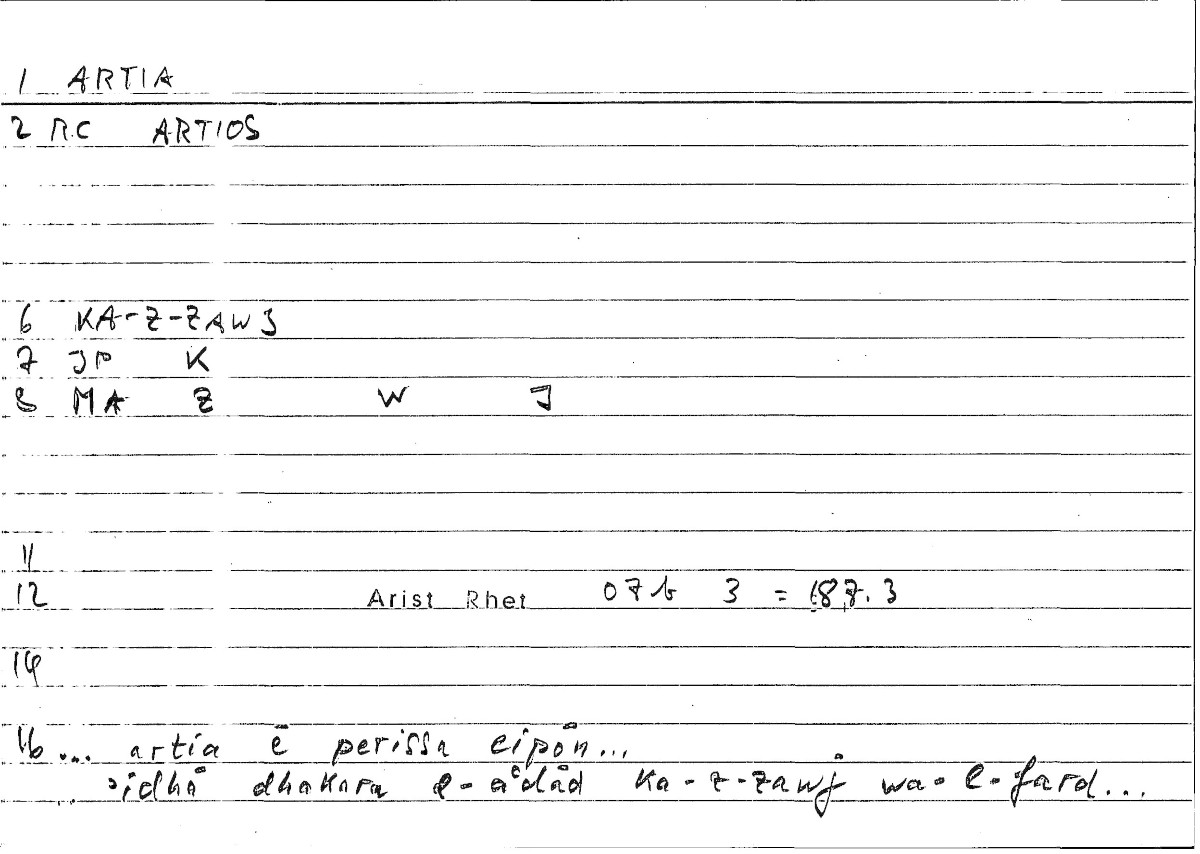 1 ARTIA
2 RC ARTIOS
6 KA-Z-ZAWJ
7 JP K
8 MA Z W J
11
12 Arist Rhet 07b 3 = 187.3
14
16 ... artia ē perissa eipōn...
... ʾidhā dhakara l-aʿdād ka-z-zawj wa-l-fard...